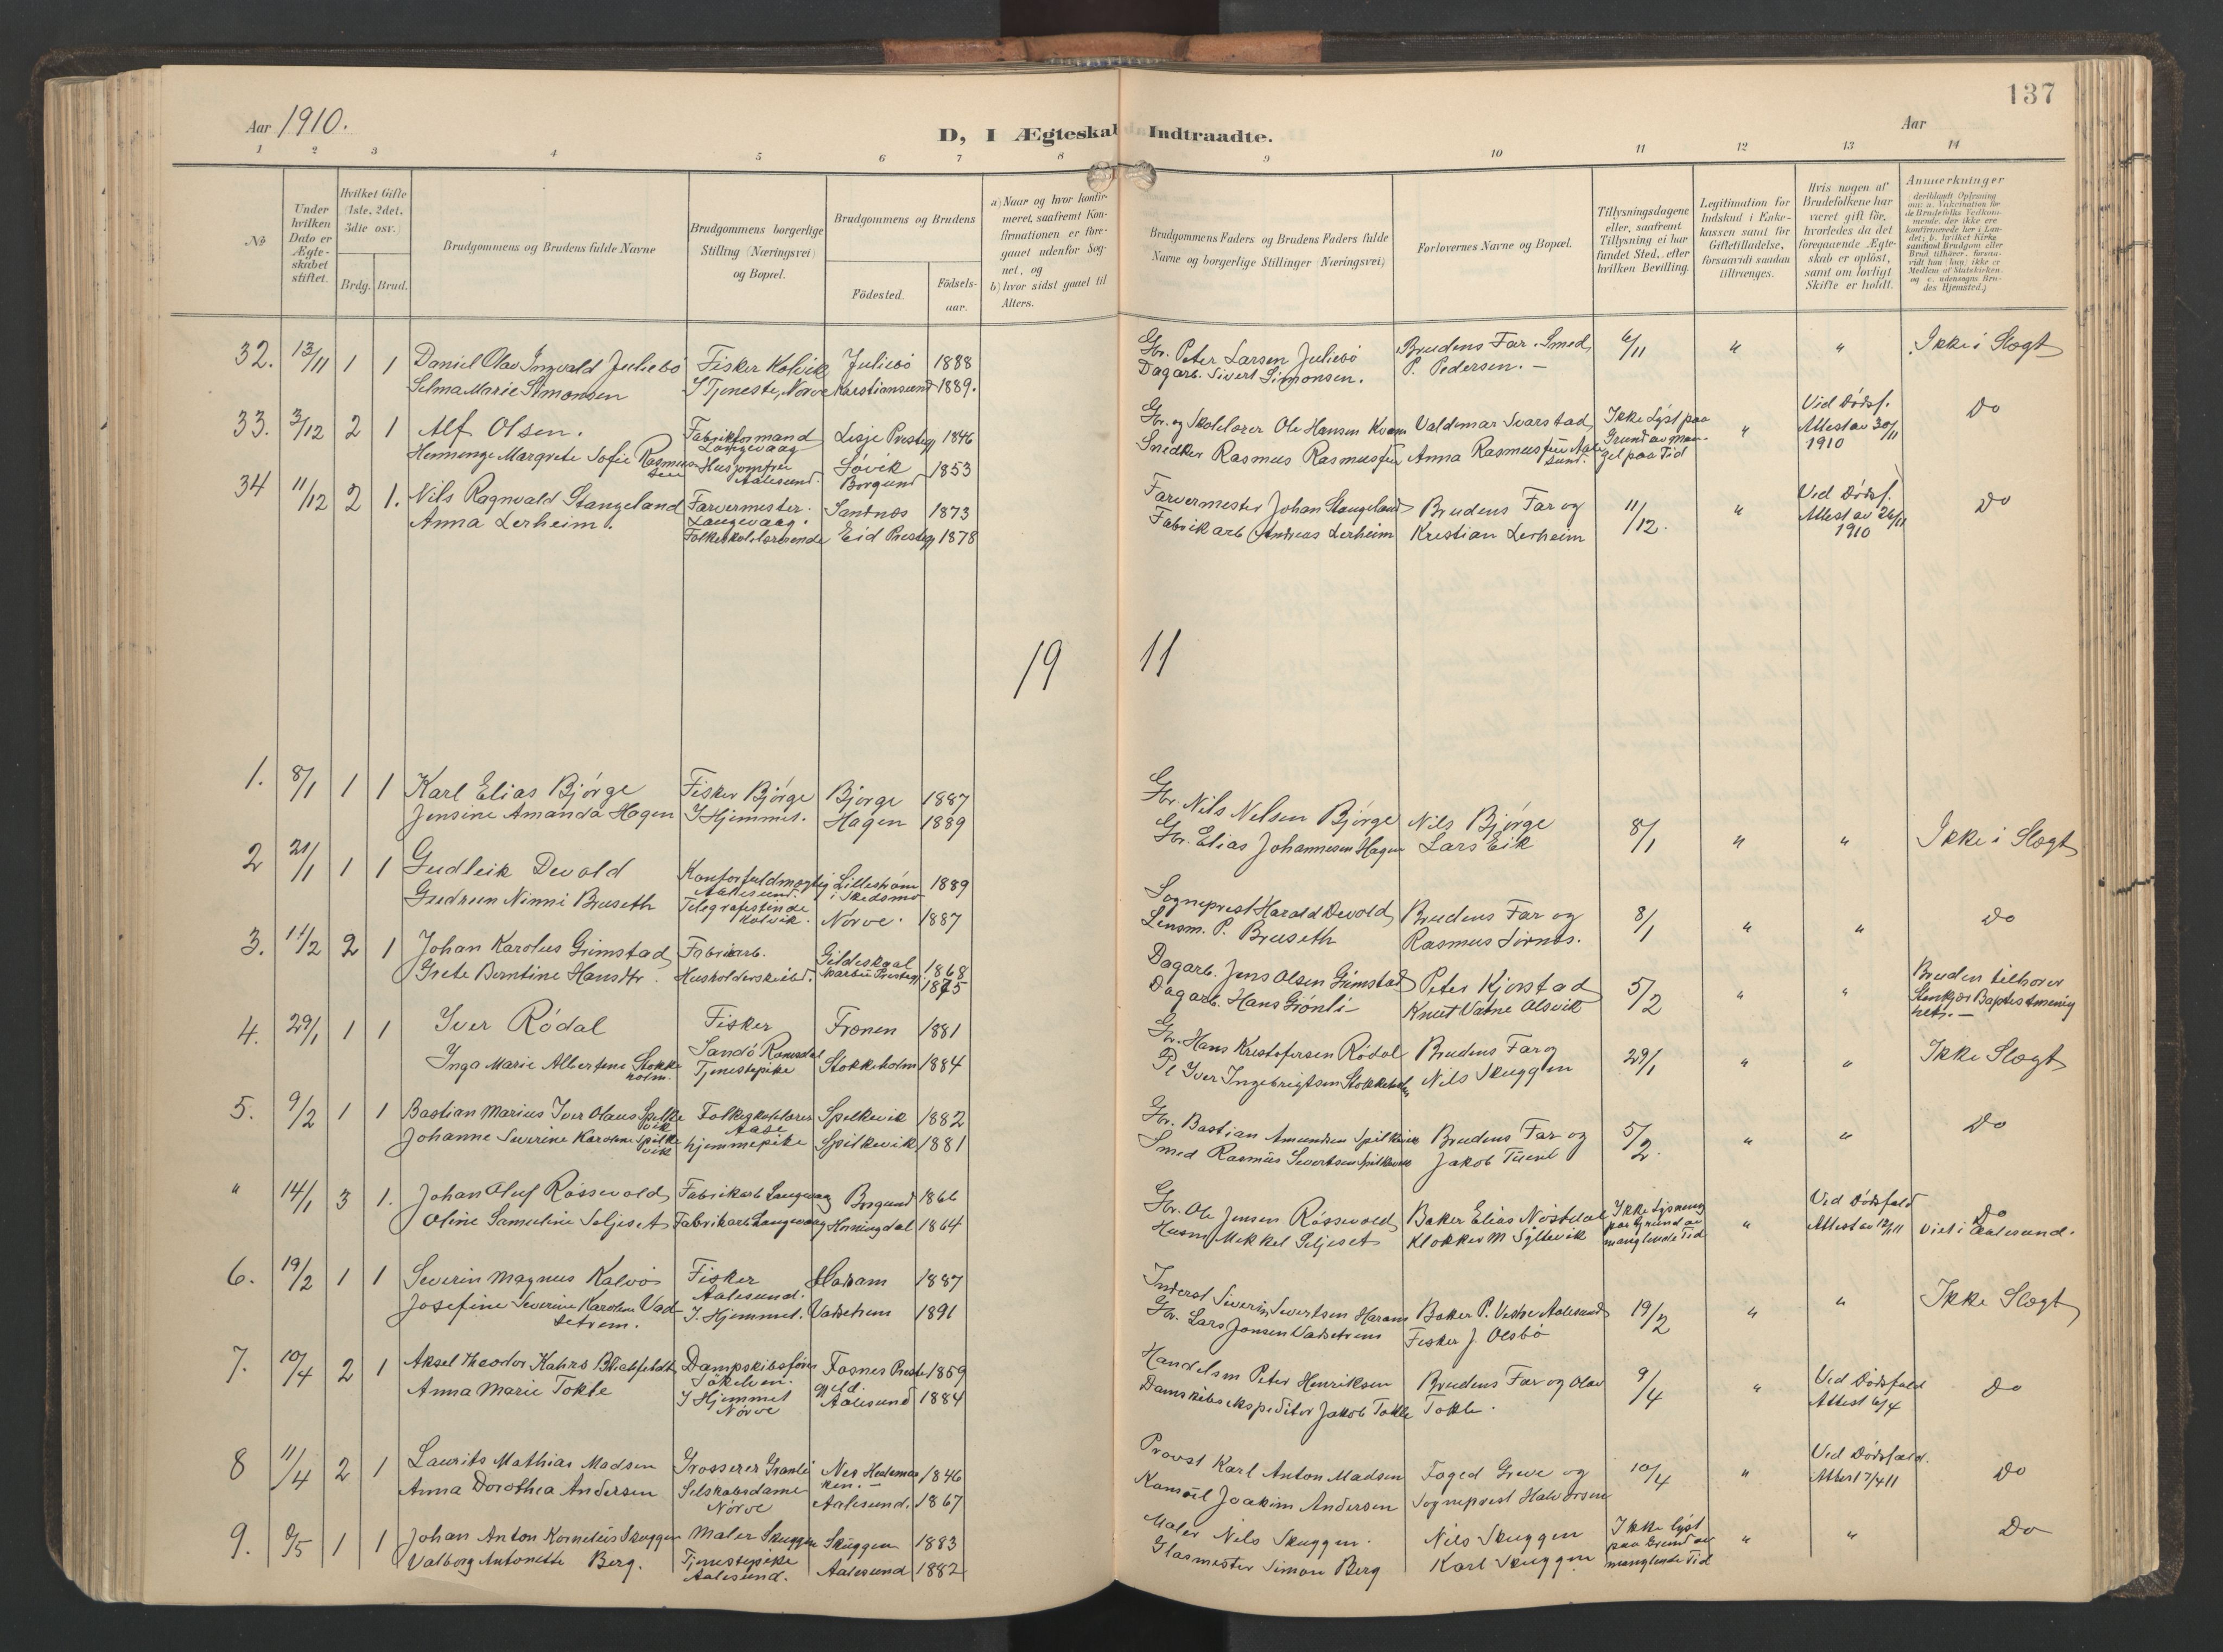 137
Aar 1910.
D, I Ægteskab Indtraadte.
Aar
1 2 3 4 5 6 7 8 9 10 11 12 13 14
No
Under hvilken Dato er Ægte-skabet stiftet.
Hvilket Gifte (1ste, 2det, 3die osv.)
Brdg. Brud.
Brudgommens og Brudens fulde Navne
Brudgommens borgerlige Stilling (Næringsvei) og Bopæl.
Brudgommens og Brudens
Fødested.
Fødsels-aar.
a) Naar og hvor konfir-meret, saafremt Kon-firmationen er fore-gaaet udenfor Sog-net, og
b) hvor sidst gaaet til Alters.
Brudgommens Faders og Brudens Faders fulde Navne og borgerlige Stillinger (Næringsvei)
Forlovernes Navne og Bopæl.
Tillysningsdagene eller, saafremt Tillysning ei har fundet Sted, efter hvilken Bevilling.
Legitimation for Indskud i Enke-kassen samt for Giftetilladelse, forsaavidt saadan tiltrænges.
Hvis nogen af Brudefolkene har været gift før, hvorledes da det foregaaende Ægte-skab er opløst, samt om lovligt Skifte er holdt.
Anmærkninger
32. 13/11 1 1 Daniel Olav Ingvald Juliebø Fisker Kolvik Juliebø 1888 Gbr. Peter Larsen Juliebø Brudens Far. Smed 6/11 " " Ikke i Slægt
Selma Marie Simonsen I Tjeneste, Nørve Kristiansund 1889. Dagarb. Sivert Simonsen. P. Pedersen. —
33. 3/12 2 1 Alf Olsen. Fabrikformand Langevaag Lesje Prestegj 1846 Gbr. og Skolelærer Ole Hansen Kvam Valdemar Svarstad Ikke Lyst paa Grund av Man-gel paa Tid " Ved Dødsf. Attest av 30/11 1910 Do
Hennenge Margrete Sofie Rasmussen Husjomfru Aalesund. Løvik Borgund 1853 Snedker Rasmus Rasmussen Anna Rasmussen Aalesund.
34 11/12 2 1. Nils Ragnvald Stangeland Farvermester. Langevaag. Sandnes 1873 Farvermester Johan Stangeland Brudens Far og 11/12. " Ved Dødsf. Attest av 26/11 1910 Do
Anna Lerheim. Folkeskolelærerinde Eid Prestegj 1878 Fabrikarb Andreas Lerheim Kristian Lerheim
19 11
1. 8/1 1 1 Karl Elias Bjørge Fisker Bjørge Bjørge 1887 Gbr. Nils Nelsen Bjørge Nils Bjørge 8/1 " " Ikke i Slægt
Jensine Amanda Hagen I Hjemmet. Hagen 1889 Gbr. Elias Johannesen Hagen Lars Eik
2 21/1 1 1 Gudleik Devold Kontorfuldmægtig Aalesund. Lillestrøm i Skedsmo 1889 Sogneprest Harald Devold Brudens Far og 8/1 " " Do
Gudrun Ninni Bruseth Telegrafistinde Kolvik. Nørve. 1887 Lensm. P. Bruseth Rasmus
3. 11/2 2 1 Johan Karolus Grimstad Fabrikarb. Gildeskaal 1868 Dagarb. Jens Olsen Grimstad Peter Kjerstad 5/2 " " Bruden tilhører Stenkjær Baptistmenighet. —
Grete Berntine Hansdtr. Husholderske Prestegj 1875 Dagarb. Hans Grønli — Knut Vatne Olsvik
4. 29/1 1 1 Iver Rødal Fisker Sandø Romsdal Frænen 1881 Gbr. Hans Kristofersen Rødal Brudens Far og 29/1 " " Ikke Slægt
Inga Marie Albertine Stokkeholm. Tjenestepike Stokkeholm 1884 Pl Iver Ingebrigtsen Stokkeholm Nils Skuggen
5. 9/2 1 1 Bastian Marius Iver Olaus Spilkevik Folkeskolelærer Aase Spilkevik 1882 Gbr. Bastian Amundsen Spilkevik Brudens Far og 5/2. " " Do
Johanne Severine Karoline Spilkevik hjemmepike Spilkevik 1881 Smed Rasmus Sivertsen Spilkevik Jakob Tuent
" 14/1 3 1. Johan Oluf Røssevold Fabrikarb Langevaag Borgund 1866 Gbr. Ole Jensen Røssevold Baker Elias Nøstdal Ikke Lysning paa Grund av manglende Tid " Ved Dødsfald Attest av 12/1 11 Do Viet i Aalesund.
Oline Samueline Seljeset Fabrikarb Langevaag Horningdal 1864 Husm Mekkel Seljeset Klokker M Syltevik
6. 19/2 1 1 Severin Magnus Kalvø Fisker Aalesund. Haram 1887 Inderst Severin Sivertsen Haram Baker P. Vestre Aalesund 19/2 " " Ikke Slægt
Josefine Severine Karoline Vadsetrem. I. Hjemmet. Vadsetrem 1891 Gbr. Lars Jonsen Vadsetrem Fisker J. Olsbø
7. 10/4 2 1 Aksel Theodor Kahrs Blichfeldt Dampskibsfører Søkelven. Fosnes Prestegjeld. 1859 Handelsm Peter Henriksen Brudens Far og Olav 9/4 " Ved Dødsfald Attest 6/4 Do
Anna Marie Tokle I Hjemmet Nørve Aalesund 1884 Damskibsekspeditør Jakob Tokle Tokle.
8 11/4 2 1 Laurits Mathias Madsen Grosserer Granli Nes Hedemarken. — 1846 Provst Karl Anton Madsen Foged Greve og 10/4 " Ved Dødsfald. Attest 7/4 11 Do
Anna Dorothea Andersen Selskabsdame Nørve Aalesund. 1867 Konsul Joakim Andersen Sogneprest Halvorsen
9. 9/5 1 1 Johan Anton Kornelius Skuggen Maler Skuggen Skuggen 1883 Maler Nils Skuggen. Nils Skuggen Ikke lyst paa Grund av manglende Tid " " Do
Valborg Antonette Berg. Tjenestepike Aalesund. Aalesund 1882 Glasmester Simon Berg Karl Skuggen